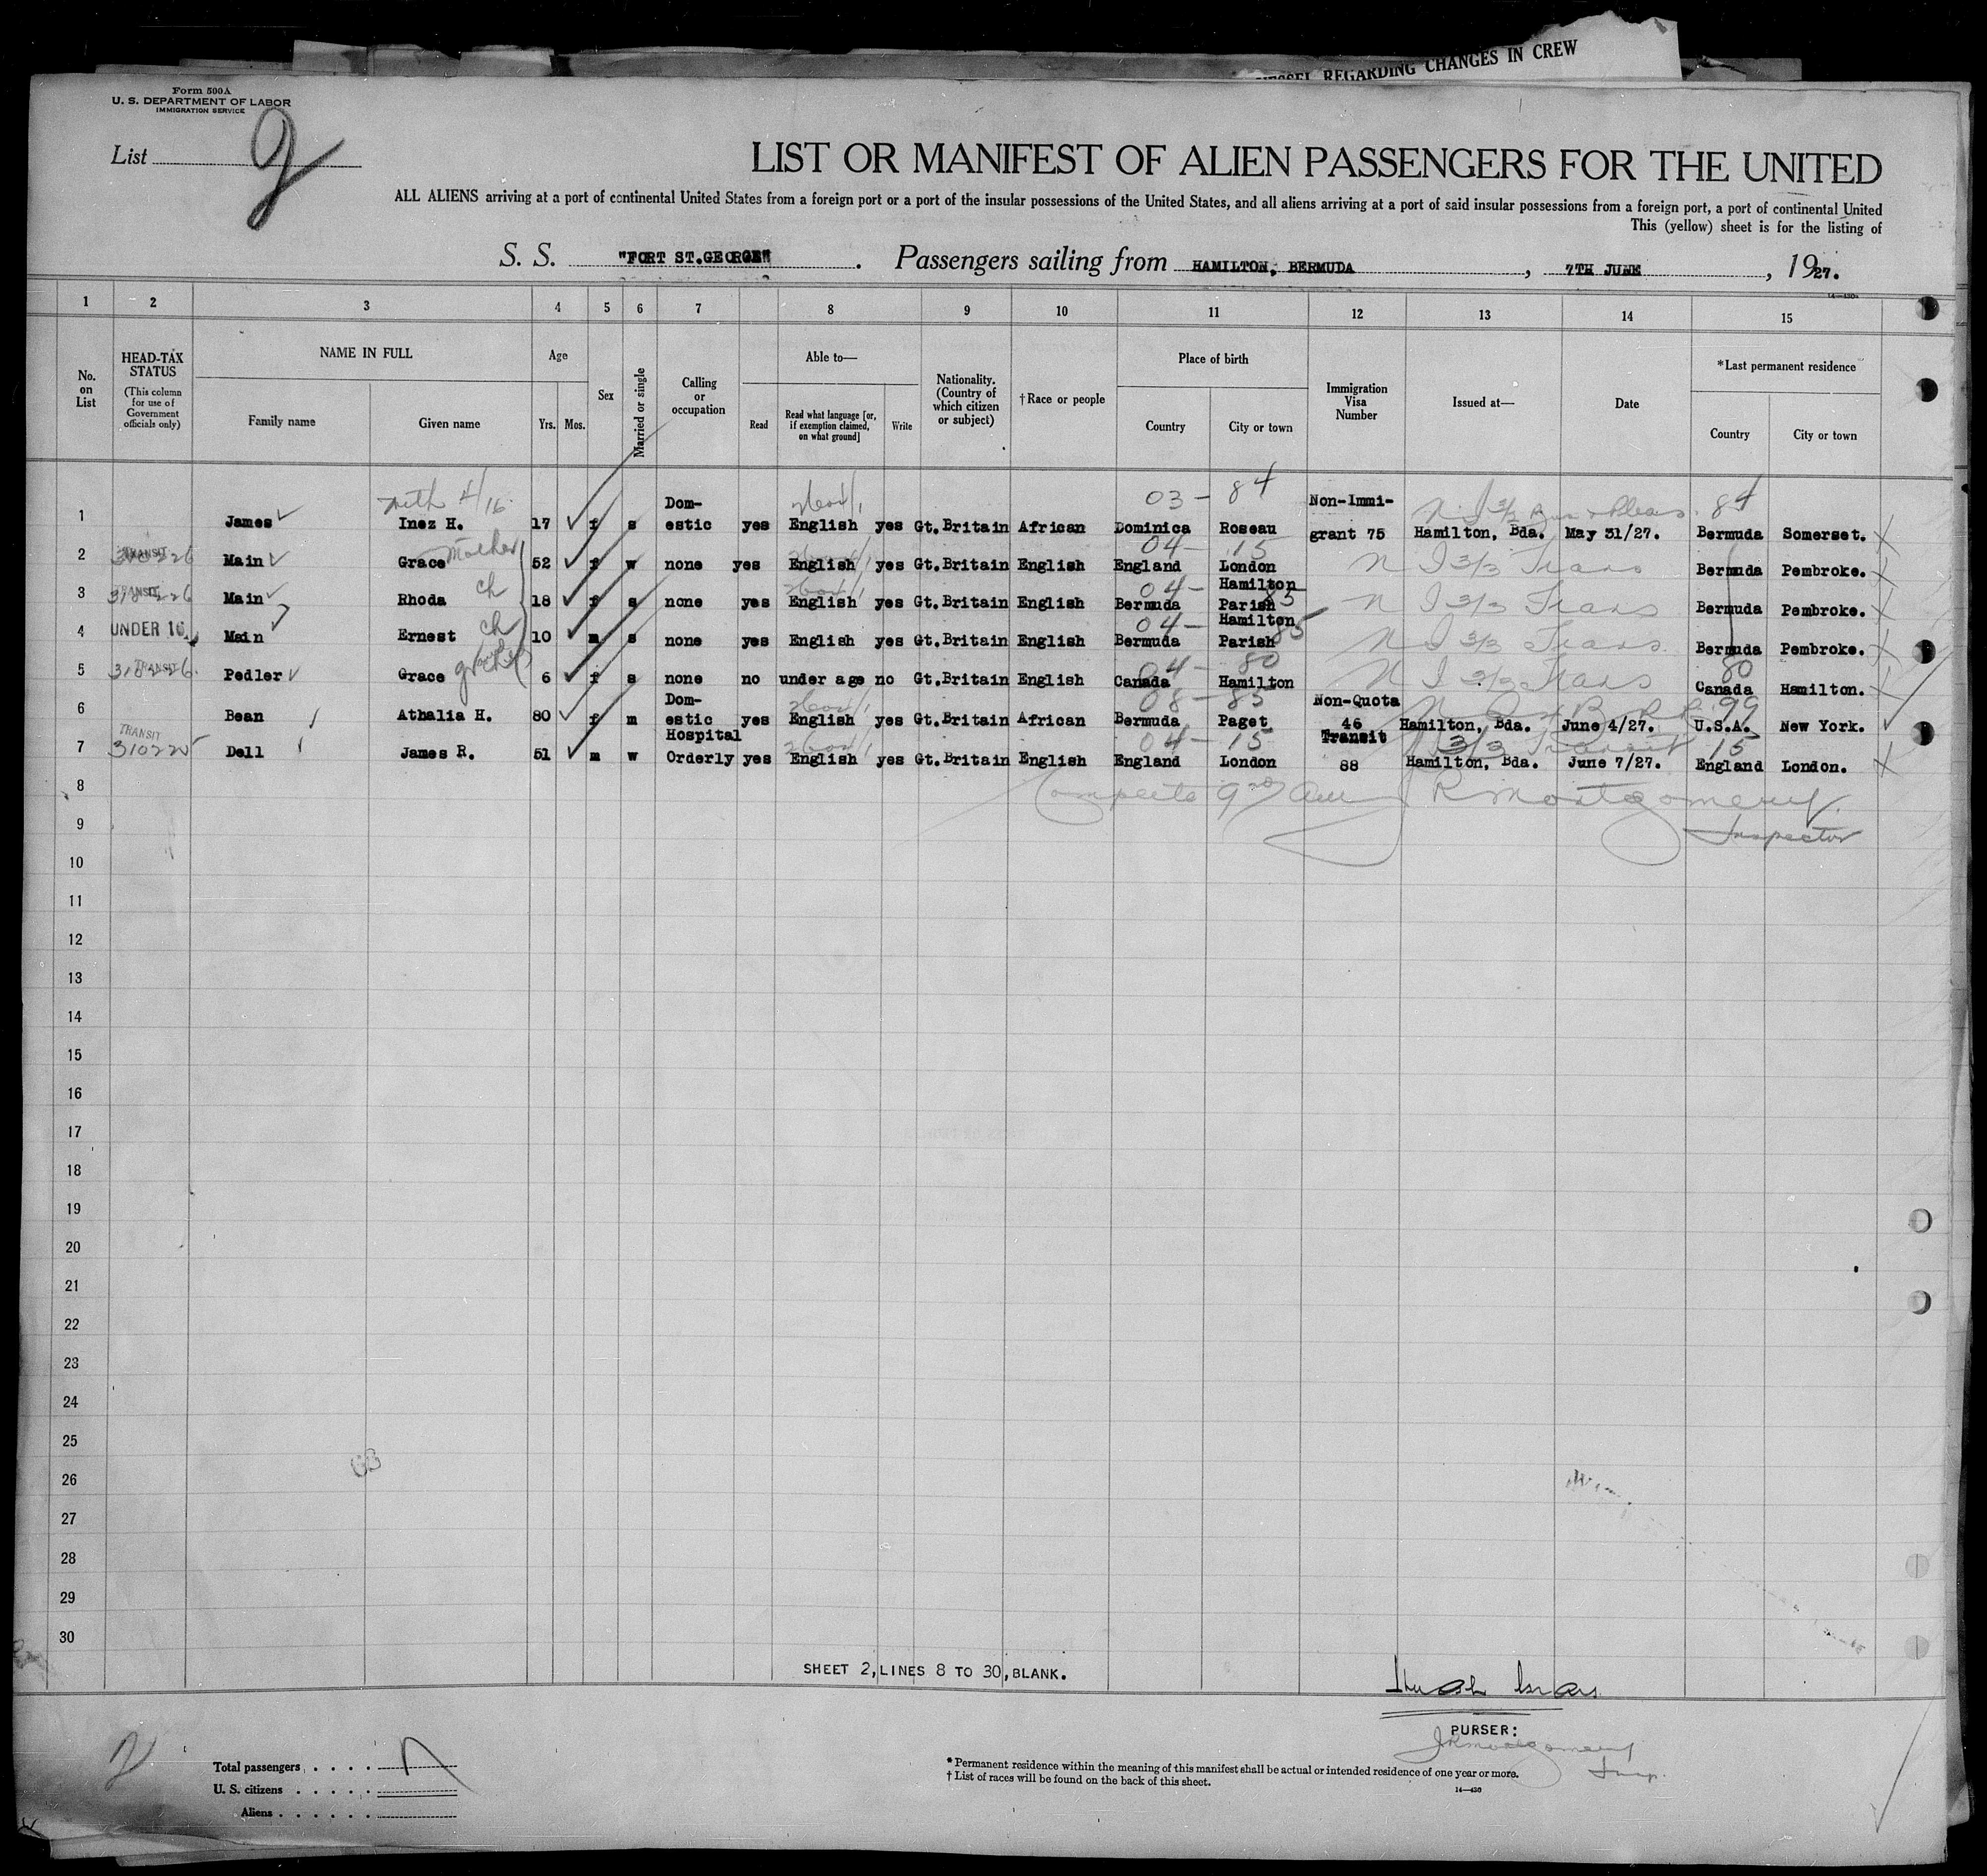 VESSEL REGARDING CHANGES IN CREW
Form 500A
U. S. DEPARTMENT OF LABOR
IMMIGRATION SERVICE
List 2
LIST OR MANIFEST OF ALIEN PASSENGERS FOR THE UNITED
ALL ALIENS arriving at a port of continental United States from a foreign port or a port of the insular possessions of the United States, and all aliens arriving at a port of said insular possessions from a foreign port, a port of continental United
This (yellow) sheet is for the listing of
S. S. "FORT ST.GEORGE". Passengers sailing from HAMILTON, BERMUDA, 7TH JUNE, 1927.
1 2 3 4 5 6 7 8 9 10 11 12 13 14 15
No. on List
HEAD-TAX STATUS
(This column for use of Government officials only)
NAME IN FULL
Family name
Given name
Age
Yrs.
Mos.
Sex
Married or single
Calling or occupation
Able to—
Read
Read what language [or, if exemption claimed, on what ground]
Write
Nationality. (Country of which citizen or subject)
†Race or people
Place of birth
Country
City or town
Immigration Visa Number
Issued at—
Date
*Last permanent residence
Country
City or town
03 - 84 84
1 James Inez H. 17 f s Domestic yes English yes Gt.Britain African Dominica Roseau Non-Immigrant 75 Hamilton, Bda. May 31/27. Bermuda Somerset.
04 - 15
2 TRANSIT Main Grace Mother 52 f w none yes English yes Gt.Britain English England London N I 3/3 Trans Bermuda Pembroke.
04 - 85
3 TRANSIT Main Rhoda ch 18 f s none yes English yes Gt.Britain English Bermuda Hamilton Parish N I 3/3 Trans Bermuda Pembroke.
04 - 85
4 UNDER 16 Main Ernest ch 10 m s none yes English yes Gt.Britain English Bermuda Hamilton Parish N I 3/3 Trans Bermuda Pembroke.
04 - 80 80
5 TRANSIT Pedler Grace 6 f s none no under age no Gt.Britain English Canada Hamilton N I 3/3 Trans Canada Hamilton.
08 - 85 99
6 Bean Athalia H. 80 f m Domestic yes English yes Gt.Britain African Bermuda Paget Non-Quota 46 Hamilton, Bda. June 4/27. U.S.A. New York.
04 - 15 3/3 Transit 15
7 TRANSIT 31022 Dell James R. 51 m w Hospital Orderly yes English yes Gt.Britain English England London Transit 88 Hamilton, Bda. June 7/27. England London.
8 J R Montgomery
9 Inspector
10
11
12
13
14
15
16
17
18
19
20
21
22
23
24
25
26
27
28
29
30
SHEET 2, LINES 8 TO 30, BLANK.
PURSER:
J R Montgomery
Insp.
2
Total passengers 7
U. S. citizens
Aliens
*Permanent residence within the meaning of this manifest shall be actual or intended residence of one year or more.
†List of races will be found on the back of this sheet.
14—430